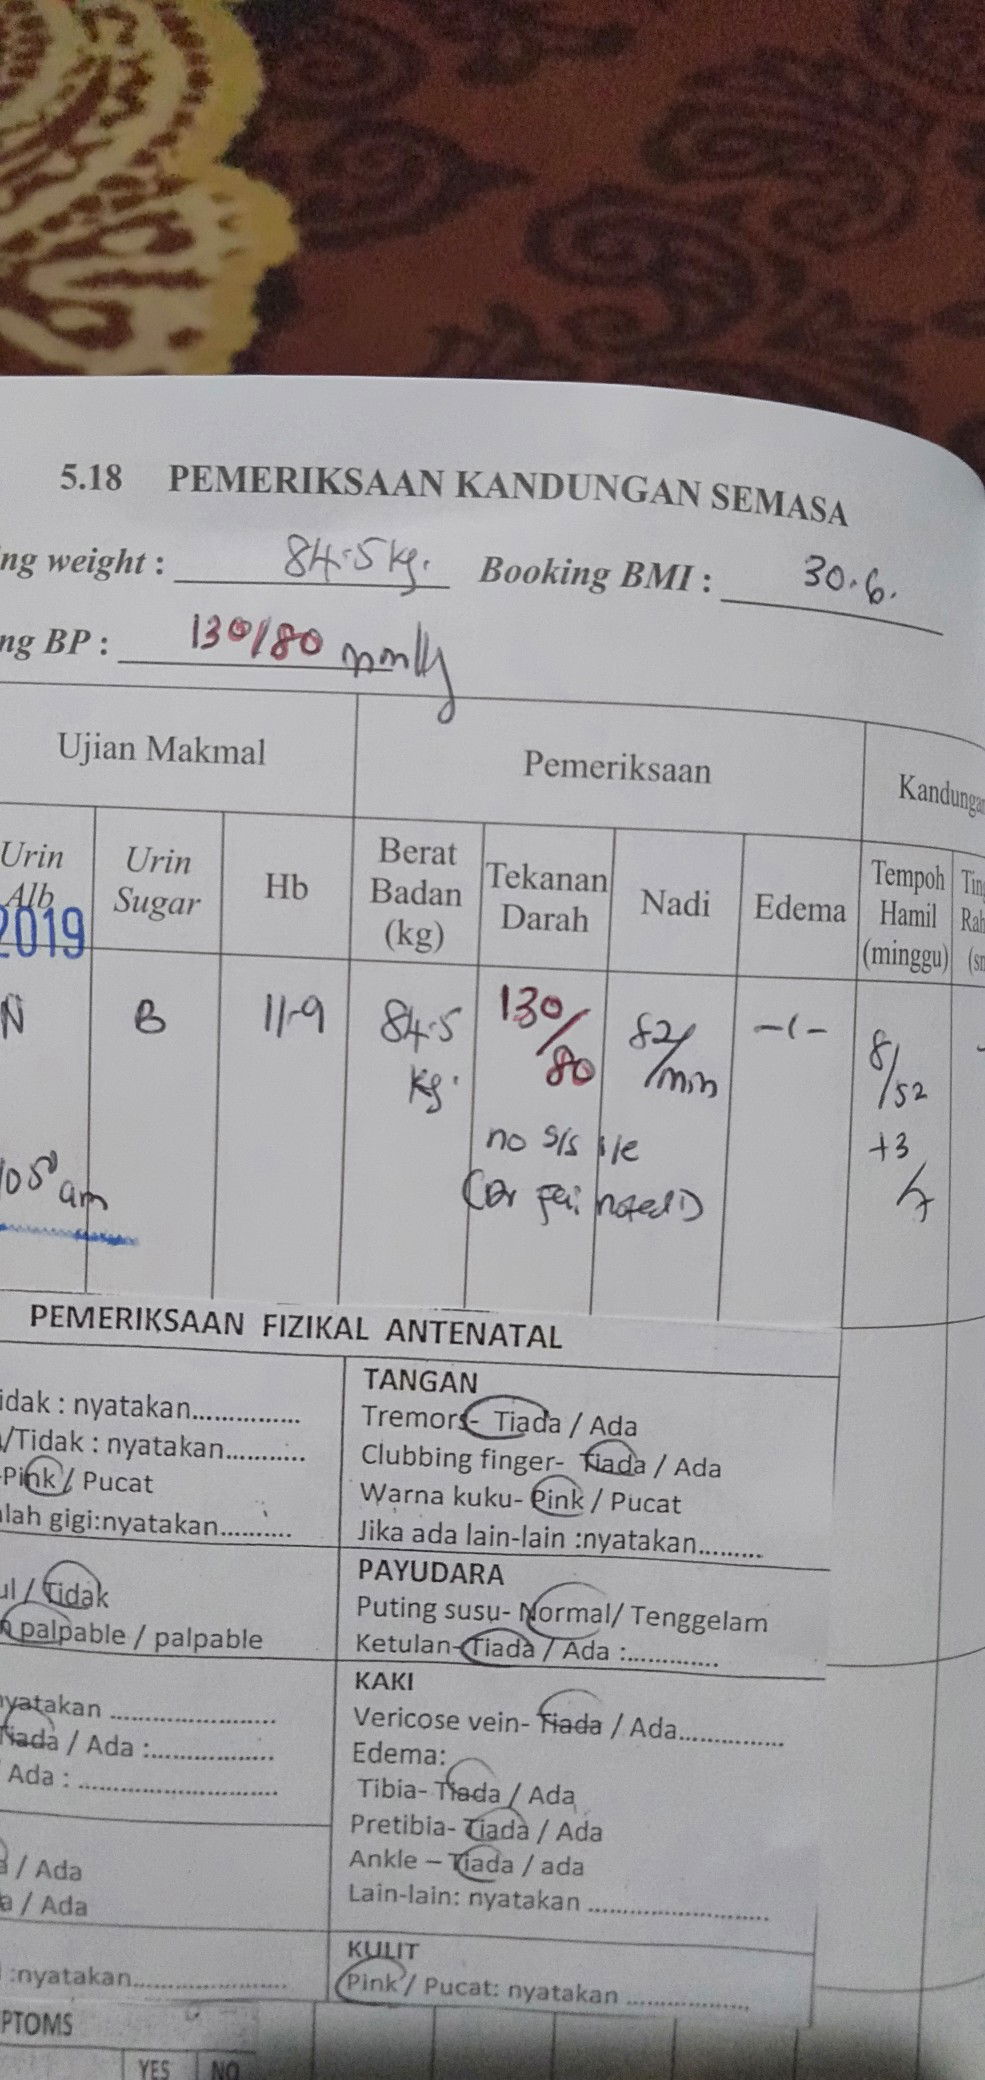 5.18 PEMERIKSAAN KANDUNGAN SEMASA
ng weight : 84.5 kg. Booking BMI : 30.6.
ng BP : 130/80 mmHg
Ujian Makmal Pemeriksaan Kandungan
Urin Alb Urin Sugar Hb Berat Badan (kg) Tekanan Darah Nadi Edema Tempoh Hamil (minggu)
2019
N B 11.9 84.5 kg. 130/80 82/min -(- 8/52
no s/s +3/7
noted)
am
PEMERIKSAAN FIZIKAL ANTENATAL
TANGAN
idak : nyatakan............... Tremors- Tiada / Ada
/Tidak : nyatakan........... Clubbing finger- Tiada / Ada
-Pink / Pucat Warna kuku- Pink / Pucat
lah gigi:nyatakan.......... Jika ada lain-lain :nyatakan.........
PAYUDARA
ul / Tidak Puting susu- Normal/ Tenggelam
palpable / palpable Ketulan- Tiada / Ada :.............
KAKI
nyatakan .................... Vericose vein- Tiada / Ada...............
Tiada / Ada :............... Edema:
Ada : ........................ Tibia- Tiada / Ada
Pretibia- Tiada / Ada
a / Ada Ankle – Tiada / ada
a / Ada Lain-lain: nyatakan .........................
KULIT
:nyatakan...................... Pink / Pucat: nyatakan .................
PTOMS
YES NO